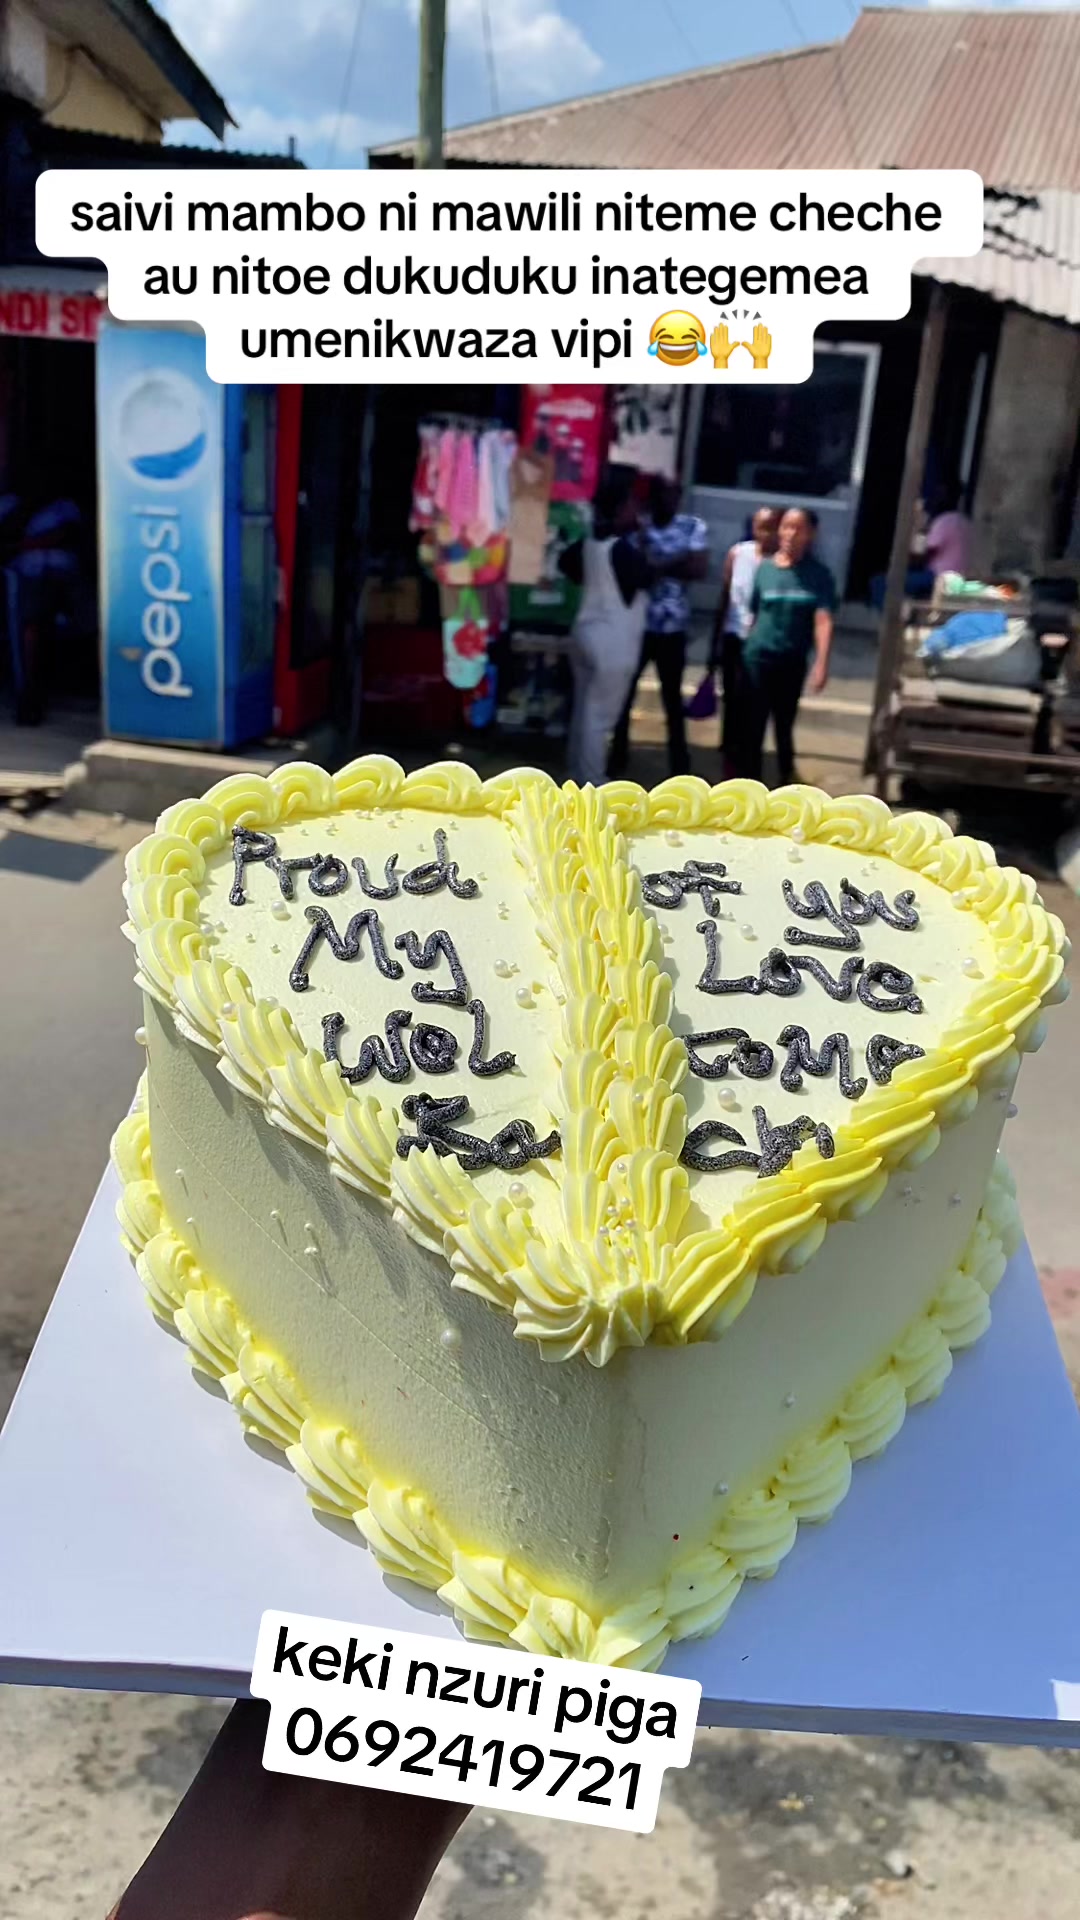 saivi mambo ni mawili niteme cheche
au nitoe dukuduku inategemea
umenikwaza vipi 😂🙌
NDI
pepsi
Proud of you
My Love
Wel coma
Ba
keki nzuri piga
0692419721